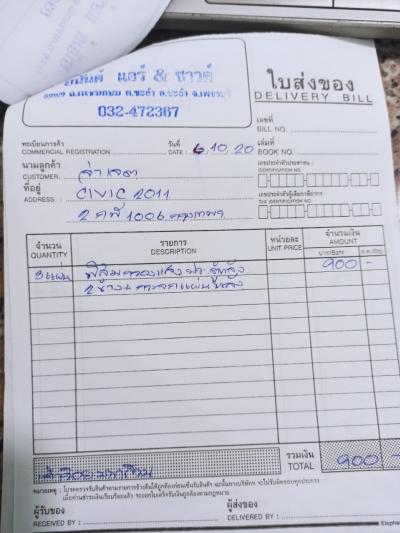 แอร์ & ซาวด์
อ.ชะอำ จ.เพชรบุรี
032-472367
ใบส่งของ
DELIVERY BILL
เลขที่
BILL NO.
ทะเบียนการค้า
COMMERCIAL REGISTRATION
วันที่
DATE : 6,10,20
เล่มที่
BOOK NO.
นามลูกค้า
CUSTOMER
เลขประจำตัวประชาชน
IDENTIFICATION NO.
ที่อยู่
ADDRESS : CIVIC 2011
เลขประจำตัวผู้เสียภาษีอากร
TAX IDENTIFICATION NO.
1006 กรุงเทพฯ
จำนวน
QUANTITY
รายการ
DESCRIPTION
หน่วยละ
UNIT PRICE
จำนวนเงิน
AMOUNT
บาท/Baht
3 แผ่น ฟิล์มกรองแสง 900 -
รวมเงิน
TOTAL
900 -
หมายเหตุ : โปรดตรวจรับสินค้าตามรายการข้างต้นให้ถูกต้องก่อนเซ็นรับสินค้า
ผู้รับของ
RECEIVED BY :
ผู้ส่งของ
DELIVERED BY :